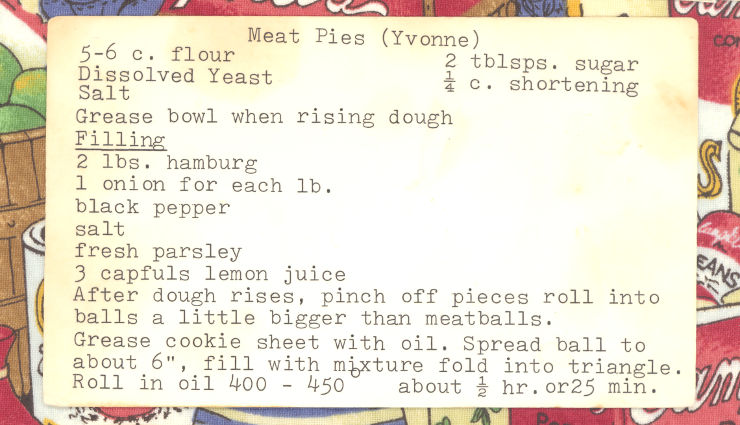 Meat Pies (Yvonne)
5-6 c. flour 2 tblsps. sugar
Dissolved Yeast ¼ c. shortening
Salt
Grease bowl when rising dough
Filling
2 lbs. hamburg
1 onion for each lb.
black pepper
salt
fresh parsley
3 capfuls lemon juice
After dough rises, pinch off pieces roll into
balls a little bigger than meatballs.
Grease cookie sheet with oil. Spread ball to
about 6", fill with mixture fold into triangle.
Roll in oil 400 - 450° about ½ hr.or25 min.